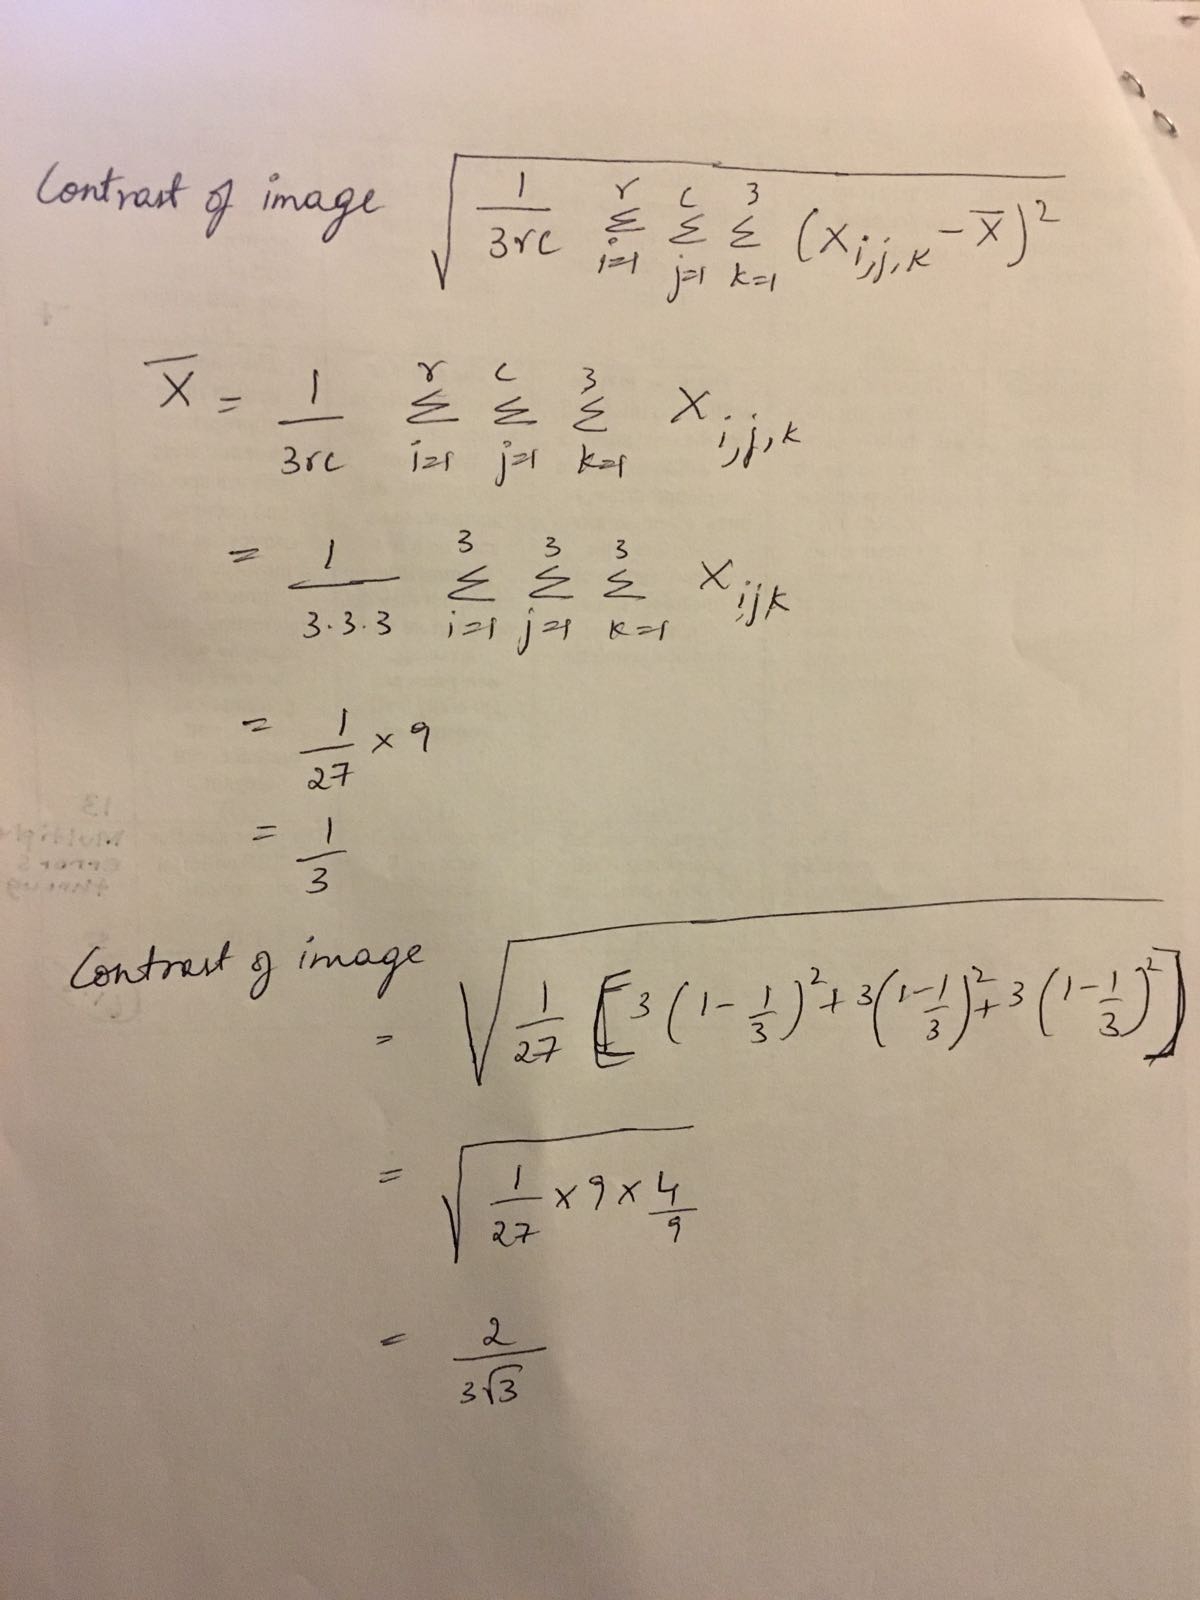 Contrast of image √(1/3rc Σ_{i=1}^{r} Σ_{j=1}^{c} Σ_{k=1}^{3} (X_{i,j,k} - X̅)²)
X̅ = 1/3rc Σ_{i=1}^{r} Σ_{j=1}^{c} Σ_{k=1}^{3} X_{i,j,k}
= 1/3.3.3 Σ_{i=1}^{3} Σ_{j=1}^{3} Σ_{k=1}^{3} X_{ijk}
= 1/27 × 9
= 1/3
Contrast of image
= √(1/27 [3(1-1/3)² + 3(1-1/3)² + 3(1-1/3)²])
= √(1/27 × 9 × 4/9)
= 2/3√3